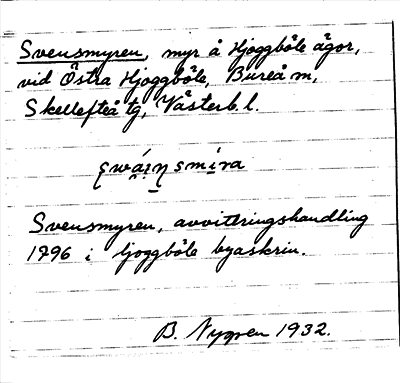 Svensmyren, myr å Hjoggböle ägor,
vid Östra Hjoggböle, Bureå m,
Skellefteå tg, Västerb. l.
Svensmyren, avvitteringshandling
1796 i Hjoggböle byaskrin.
B. Nygren 1932.